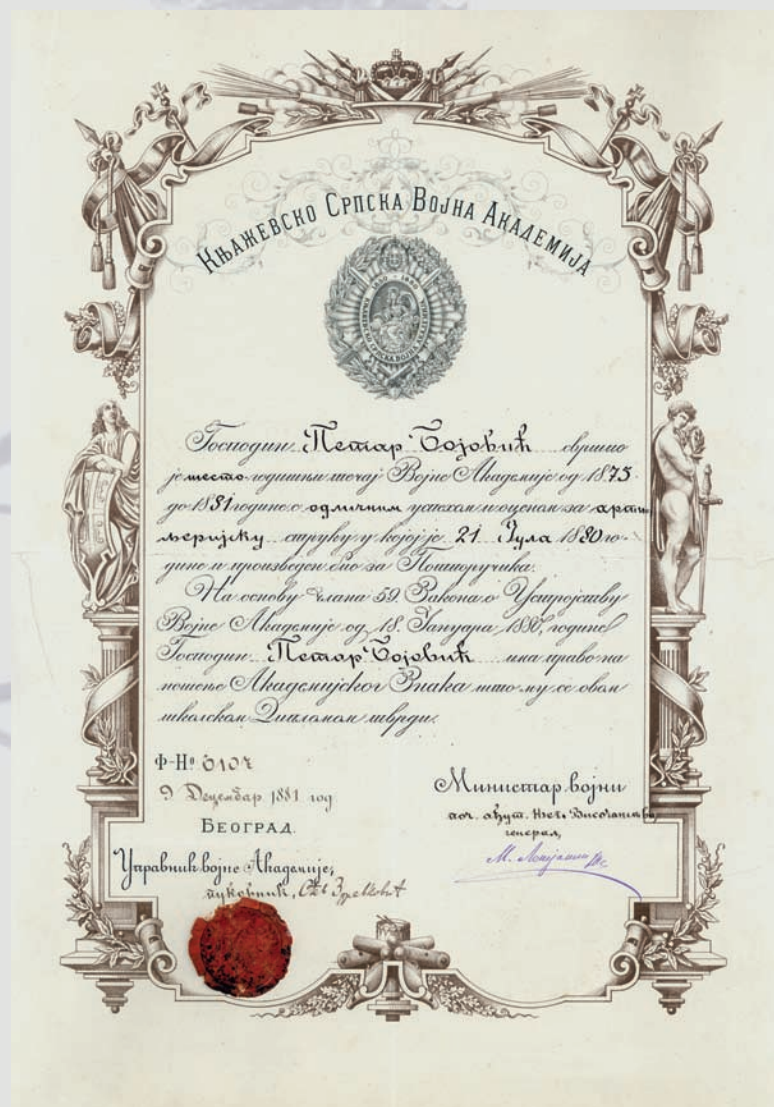 Књажевско Српска Војна Академија
КЊАЖЕВСКО СРПСКА ВОЈНА АКАДЕМИЈА
Господин Петар Бојовић свршио
је шесто-годишњи течај Војне Академије од 1875
до 1881 године с одличним успехом и оценом за арти
љеријску струку у којој је 21 Јула 1880 го-
дине и произведен био за Потпоручика.
На основу члана 59. Закона о Устројству
Војне Академије од 18. Јануара 1880, године
Господин Петар Бојовић има право на
ношење Академијског Знака што му се овом
школском Дипломом тврди.
Ф-Нº
9 Децембар 1881 год
БЕОГРАД.
Управник војне Академије,
пуковник,
Министар војни
поч. ађут. Њег. Височанства
генерал,